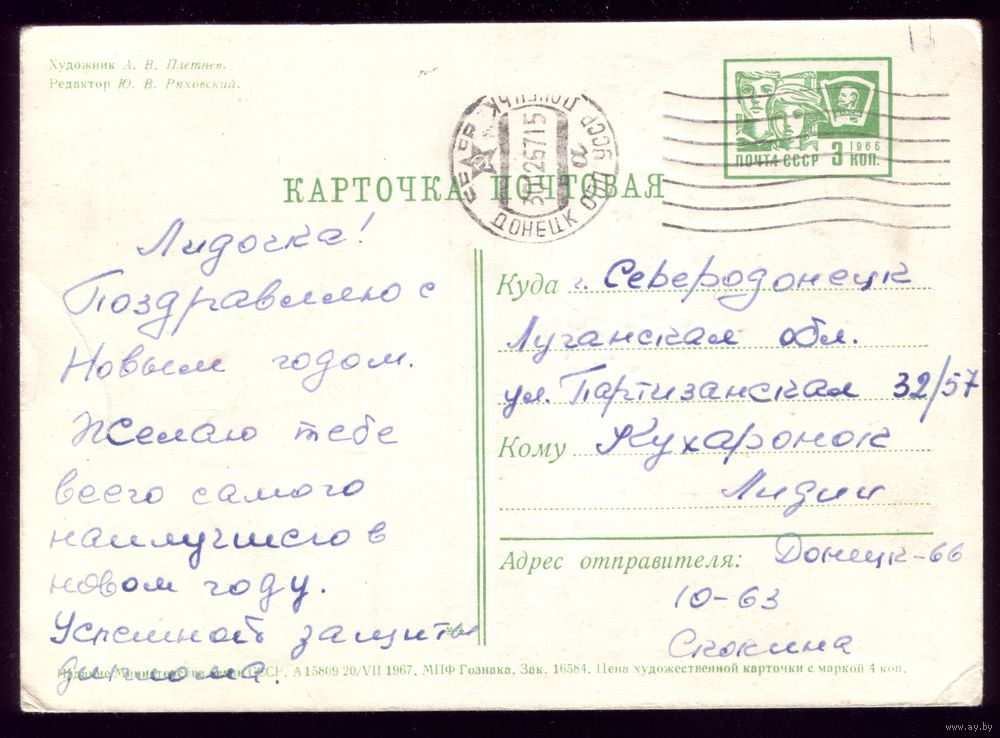 Художник А. В. Плетнев.
Редактор Ю. В. Ряховский.
ПОЧТА СССР 3 КОП.
1966
ДОНЕЦК ОБЛ
КАРТОЧКА ПОЧТОВАЯ
Лидочка!
Поздравляю с
Новым годом.
Желаю тебе
всего самого
наилучшего в
новом году.
Успешной защиты
диплома.
Куда г. Северодонецк
Луганская обл.
ул. Партизанская 32/57
Кому Кухаронок
Лидии
Адрес отправителя: Донецк-66
10-63
Издание Министерства связи СССР. А 15809 20/VII 1967. МПФ Гознака. Зак. 16584. Цена художественной карточки с маркой 4 коп.
www.ay.by